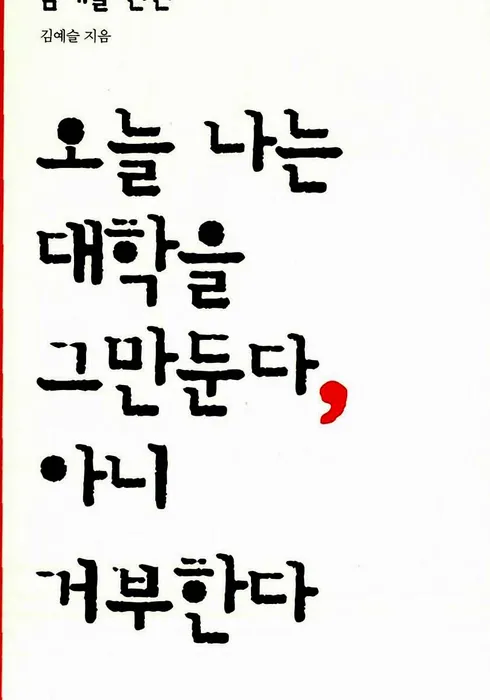 김예슬 지음
오늘 나는
대학을
그만둔다,
아니
거부한다